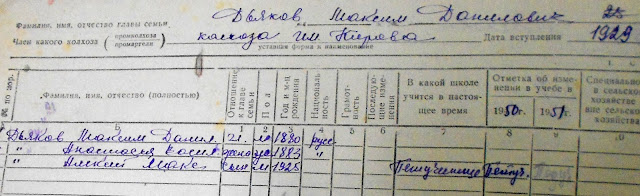 Фамилия, имя, отчество главы семьи Дьяков Максим Данилович 25
Член какого колхоза (промколхоза, промартели) колхоза им Кирова Дата вступления 1929
уставная форма и наименование
№ по пор. Фамилия, имя, отчество (полностью) Отношение к главе семьи Пол Год и м-ц рождения Национальность Грамотность Последующие изменения В какой школе учится в настоящее время Отметка об изменении в учебе в 1950г. 1951г. Специально в сельском хозяйстве вне сельского хозяйства
1 2 3 4 5 6 7 8 9 10
Дьяков Максим Данил. гл. м 1880 русс
" Анастасия жена 1883 "
" сын м 1925